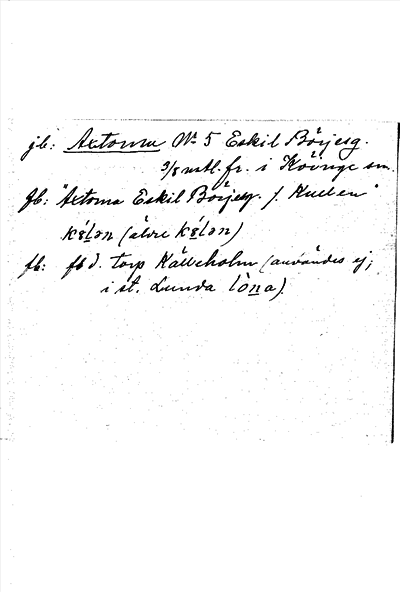 jb: Axtorna Nº 5 Eskil Börjesg.
3/8 mtl. fr. i Köinge sn.
gb: "Axtorna Eskil Börjesg. /. Kullen"
kɵ́lən (äldre kɵ́lən)
fb: fb d. torp Källeholm (användes ej;
i st. Lunda lòna).